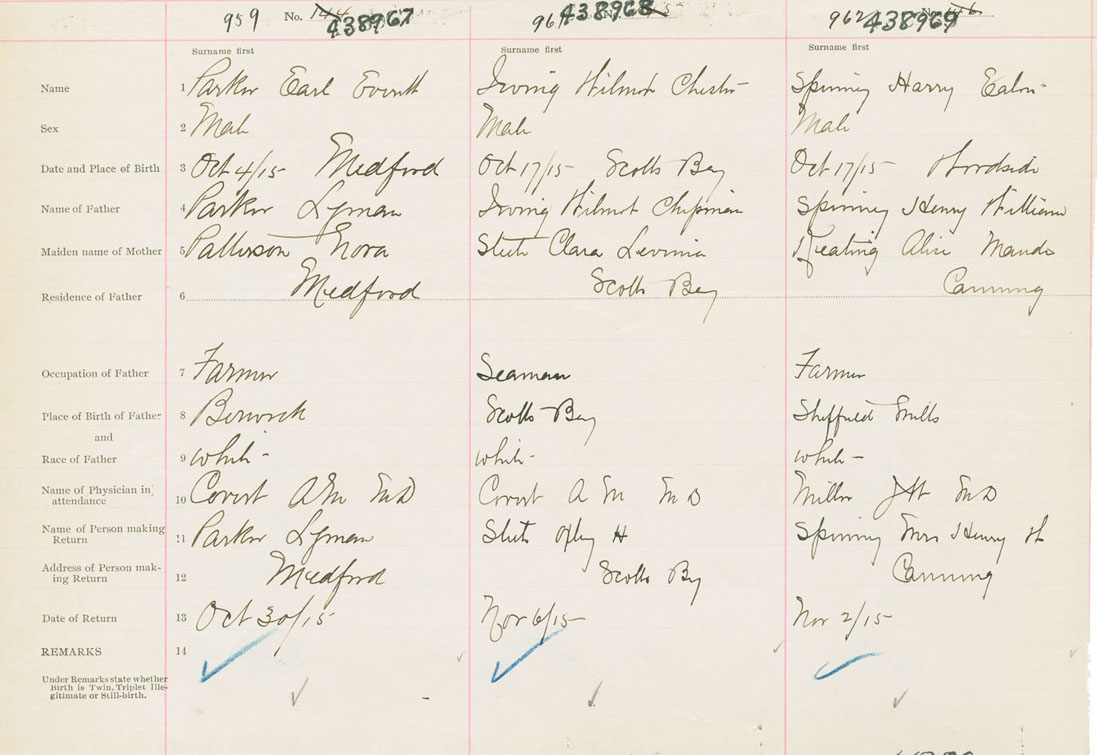 959 No. 144 438967 961 438968 962 No. 146 438969
Surname first Surname first Surname first
Name 1 Parker Earl Everett Irving Wilmot Chester Spinney Harry Eaton
Sex 2 Male Male Male
Date and Place of Birth 3 Oct 4/15 Medford Oct 17/15 Scotts Bay Oct 17/15 Woodside
Name of Father 4 Parker Lyman Irving Wilmot Chipman Spinney Henry William
Maiden name of Mother 5 Patterson Nora Steele Clara Levinia Keating Alice Maude
Residence of Father 6 Medford Scotts Bay Canning
Occupation of Father 7 Farmer Seaman Farmer
Place of Birth of Father 8 Berwick Scotts Bay Sheffield Mills
and
Race of Father 9 white white white
Name of Physician in attendance 10 Covert A M M D Covert A M M D Miller J W M D
Name of Person making Return 11 Parker Lyman Steele H Spinney Mrs Henry W
Address of Person making Return 12 Medford Scotts Bay Canning
Date of Return 13 Oct 30/15 Nov 6/15 Nov 2/15
REMARKS 14
Under Remarks state whether
Birth is Twin, Triplet Ille-
gitimate or Still-birth.